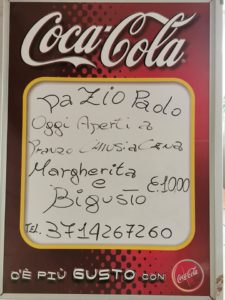 Coca-Cola
Da Zio Paolo
Oggi Aperti a
Pranzo - CHIUSi a CeNa
Margherita
e £1000
BiGUSTO
Tel. 3714267260
C'È PIÙ GUSTO CON
Coca-Cola